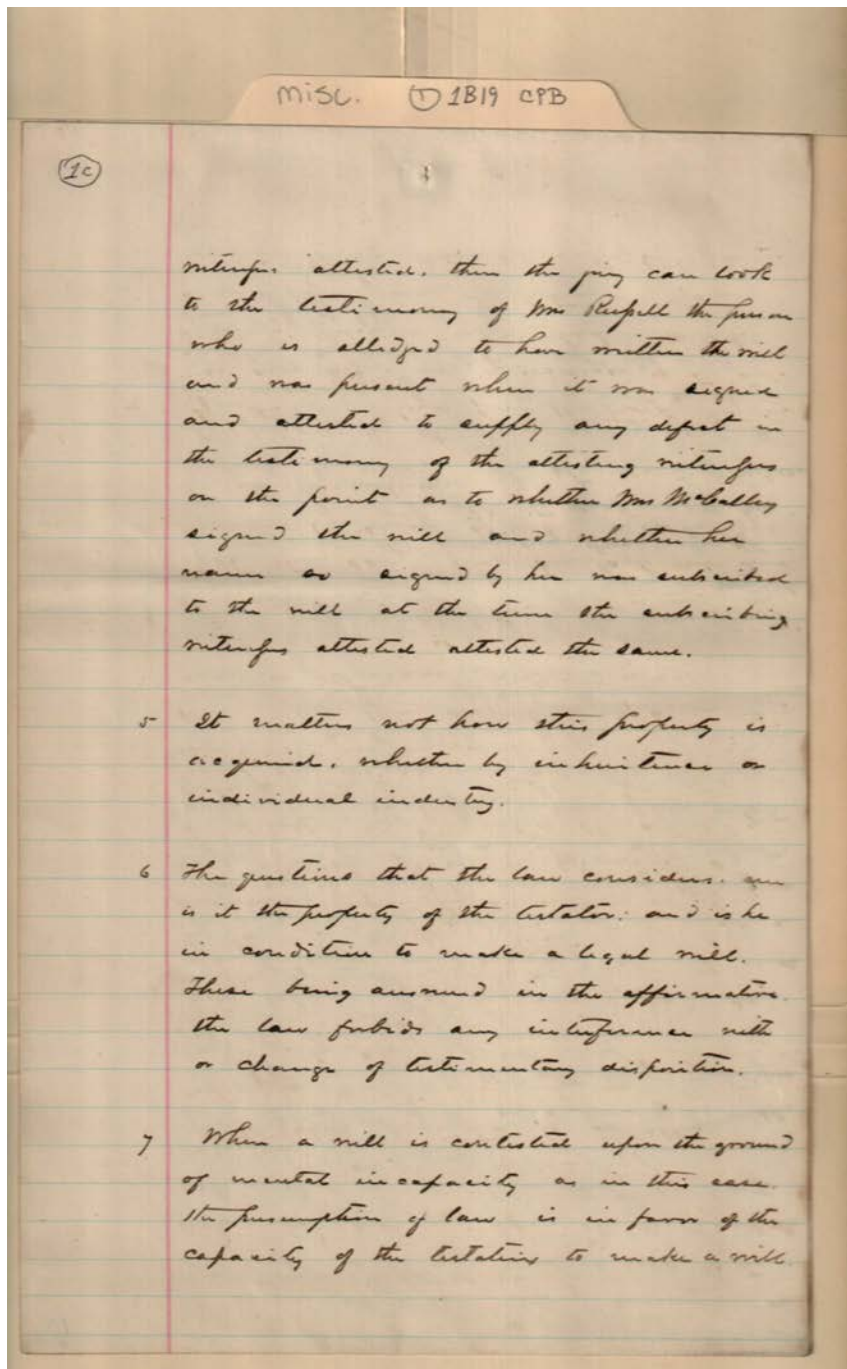 misc. ① 1B19 CPB
1c
witness attested, then the jury can look
to the testimony of Mrs Russell the person
who is alledged to have written the will
and was present when it was signed
and attested to supply any defect in
the testimony of the attesting witnesses
on the point as to whether Mrs McCalley
signed the will and whether her
name as signed by her was subscribed
to the will at the time the subscribing
witnesses attested attested the same.
5 It matters not how this property is
acquired, whether by inheritence or
individual industry.
6 The questions that the law considers. are
is it the property of the testator; and is he
in condition to make a legal will.
These being answered in the affirmative
the law forbids any interference with
or change of testimentary disposition.
7 When a will is contested upon the ground
of mental incapacity as in this case.
the presumption of law is in favor of the
capacity of the testatrix to make a will